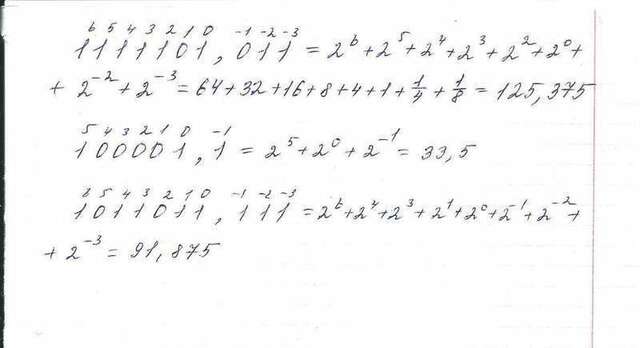 6 5 4 3 2 1 0 -1 -2 -3
1111101,011 = 2⁶+2⁵+2⁴+2³+2²+2⁰+
+ 2⁻²+2⁻³ = 64+32+16+8+4+1+1/4+1/8 = 125,375
5 4 3 2 1 0 -1
100001,1 = 2⁵+2⁰+2⁻¹ = 33,5
6 5 4 3 2 1 0 -1 -2 -3
1011011,111 = 2⁶+2⁴+2³+2¹+2⁰+2⁻¹+2⁻²+
+ 2⁻³ = 91,875